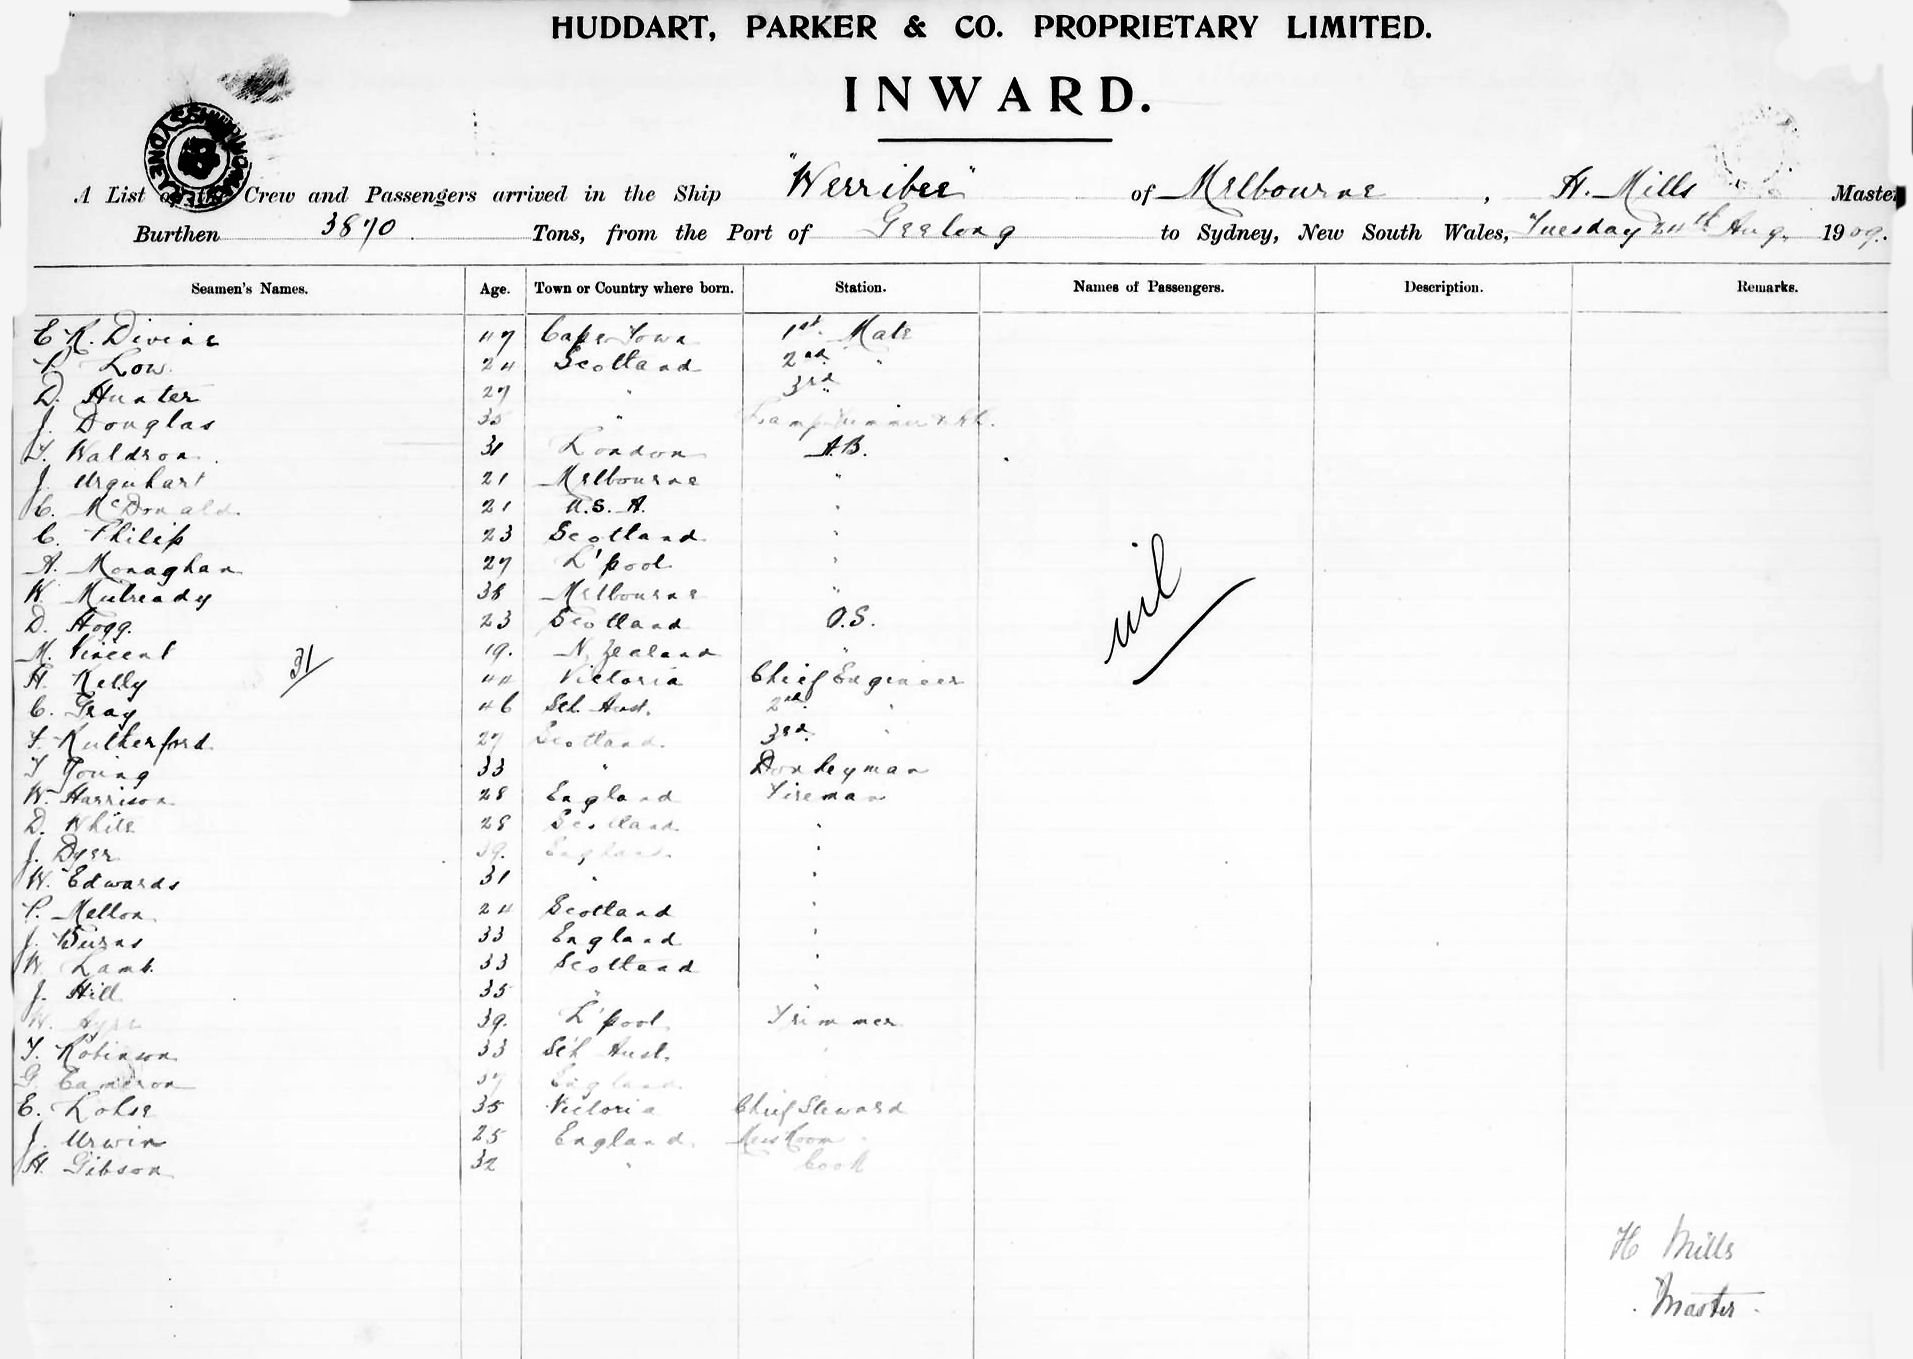 HUDDART, PARKER & CO. PROPRIETARY LIMITED.
INWARD.
A List of the Crew and Passengers arrived in the Ship "Werribee" of Melbourne, H. Mills Master
Burthen 3870 Tons, from the Port of Geelong to Sydney, New South Wales, Tuesday 24th Aug. 1909.
Seamen's Names. Age. Town or Country where born. Station. Names of Passengers. Description. Remarks.
E R. Divine 47 Cape Town 1st. Mate
Low. 24 Scotland 2nd. "
D. Hunter 27 " 3rd "
J. Douglas 35 " Lamp Trimmer
Waldron. 31 London A.B.
J. Urquhart 21 Melbourne "
C. McDonald. 21 U.S.A. "
C. Philip 23 Scotland "
A. Monaghan 27 L'pool "
W. Mulready 38 Melbourne "
D. Hogg. 23 Scotland O.S.
M. Vincent 19. N. Zealand "
31
nil
H. Kelly 44 Victoria Chief Engineer
C. Gray 46 Sth. Aust. 2nd. "
Rutherford. 27 Scotland. 3rd. "
T Young 33 " Donkeyman
W. Harrison 28 England Fireman
D. White 28 Scotland "
J. Dyer 39. England. "
W. Edwards 31 " "
P. Mellon 24 Scotland "
J. Burns 33 England "
W. Lamb. 33 Scotland "
J. Hill 35 " "
W. Ayre 39. L'pool Trimmer
T. Robinson 33 Sth Aust. "
G. Cameron 37 England
E. Lohse 35 Victoria Chief Steward
J. Urwin 25 England. Mess Room "
H. Gibson 32 " Cook
H Mills
Master